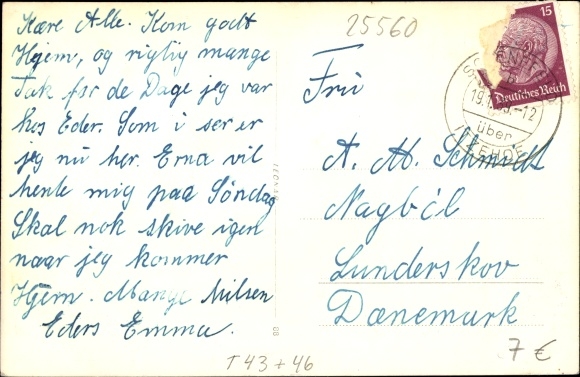 Kære Alle. Kom godt
Hjem, og rigtig mange
Tak for de Dage jeg var
hos Eder. Som i ser er
jeg nu her. Erna vil
hente mig paa Söndag
Skal nok skive igen
naar jeg kommer
Hjem. Mange Hilsen
Eders Emma.
25560
15
Deutsches Reich
über
Fru
A. M. Schmidt
Nagból
Lunderskov
Dænemark
88
T 43 + 46
7 €